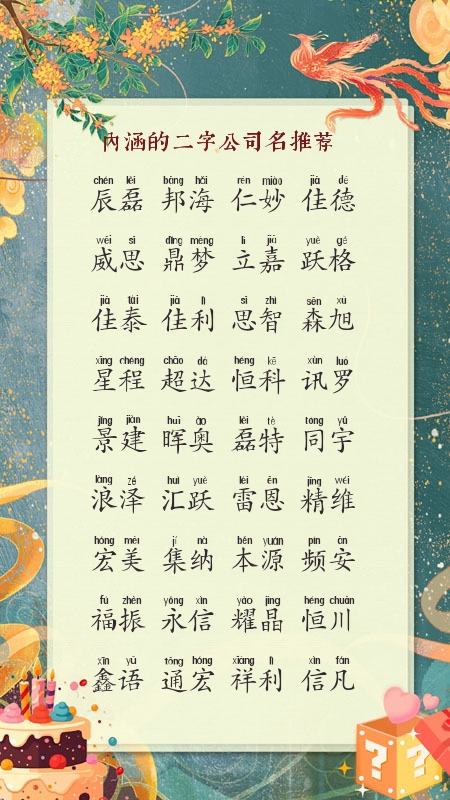 内涵的二字公司名推荐
chén lěi bāng hǎi rén miào jiā dé
辰磊 邦海 仁妙 佳德
wēi sī dǐng mèng lì jiā yuè gé
威思 鼎梦 立嘉 跃格
jiā tài jiā lì sī zhì sēn xù
佳泰 佳利 思智 森旭
xīng chéng chāo dá héng kē xùn luó
星程 超达 恒科 讯罗
jǐng jiàn huī ào lěi tè tóng yǔ
景建 晖奥 磊特 同宇
làng zé huì yuè léi ēn jīng wéi
浪泽 汇跃 雷恩 精维
hóng měi jí nà běn yuán pín ān
宏美 集纳 本源 频安
fú zhèn yǒng xìn yào jīng héng chuān
福振 永信 耀晶 恒川
xīn yǔ tōng hóng xiáng lì xìn fán
鑫语 通宏 祥利 信凡
? ?